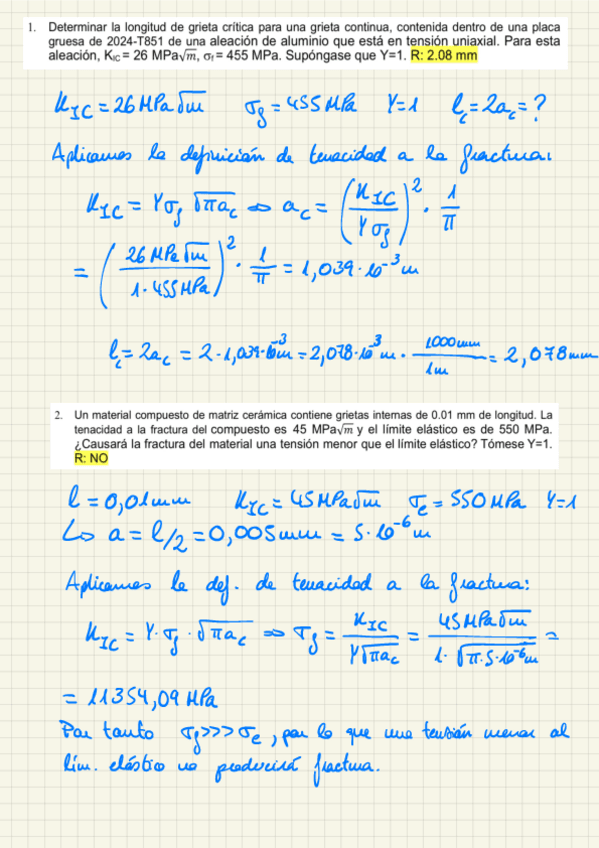 1. Determinar la longitud de grieta crítica para una grieta continua, contenida dentro de una placa
gruesa de 2024-T851 de una aleación de aluminio que está en tensión uniaxial. Para esta
aleación, K_IC = 26 MPa√m, σ_f = 455 MPa. Supóngase que Y=1. R: 2.08 mm
K_IC = 26 MPa√m σ_f = 455 MPa Y=1 l_c = 2a_c = ?
Aplicamos la definición de tenacidad a la fractura:
K_IC = Yσ_f √πa_c ⇒ a_c = (K_IC / Yσ_f)² · 1/π
= (26 MPa√m / 1·455 MPa)² · 1/π = 1,039·10⁻³ m
l_c = 2a_c = 2·1,039·10⁻³ m = 2,078·10⁻³ m · 1000mm/1m = 2,078mm
2. Un material compuesto de matriz cerámica contiene grietas internas de 0.01 mm de longitud. La
tenacidad a la fractura del compuesto es 45 MPa√m y el límite elástico es de 550 MPa.
¿Causará la fractura del material una tensión menor que el límite elástico? Tómese Y=1.
R: NO
l = 0,01mm K_IC = 45 MPa√m σ_e = 550 MPa Y=1
↳ a = l/2 = 0,005mm = 5·10⁻⁶ m
Aplicamos la def. de tenacidad a la fractura:
K_IC = Y·σ_f·√πa_c ⇒ σ_f = K_IC / Y√πa_c = 45 MPa√m / 1·√π·5·10⁻⁶m =
= 11354,09 MPa
Por tanto σ_f >>> σ_e, por lo que una tensión menor al
lím. elástico no producirá fractura.